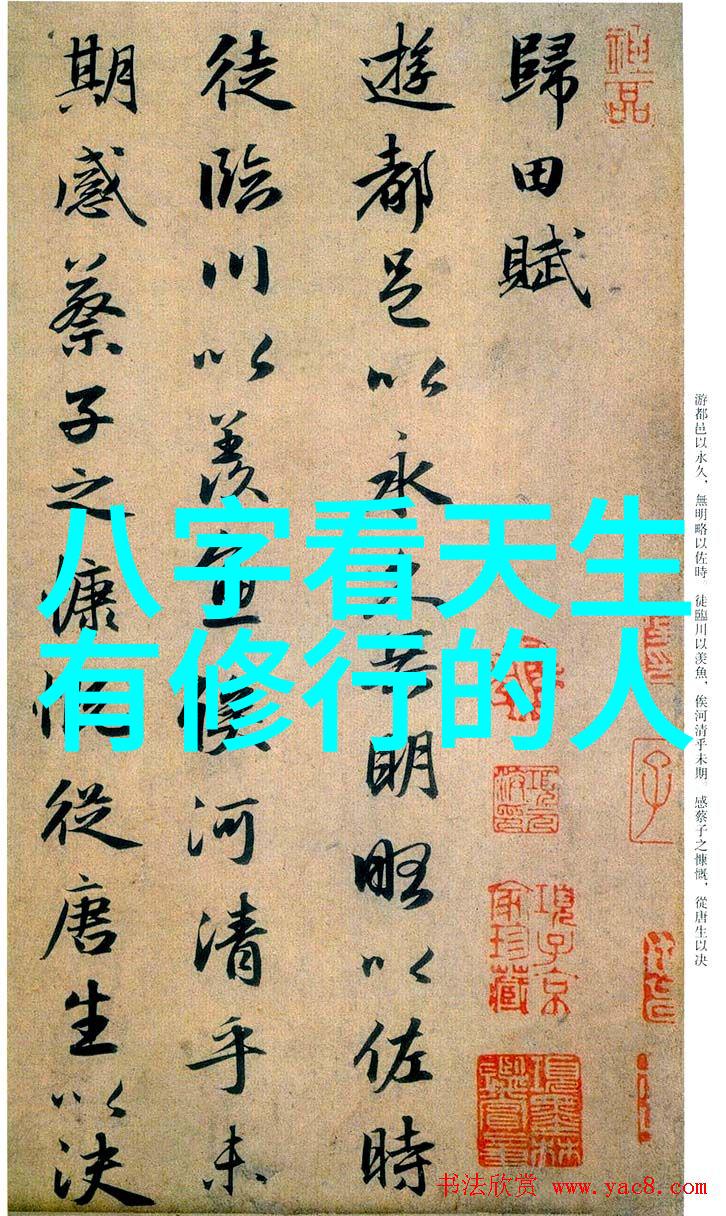 歸田賦
遊都邑以永久無明略以佐時
徒臨川以羨魚俟河清乎未
期感蔡子之慷慨從唐生以决
八字看天生
有修行的人
游都邑以永久，無明略以佐時。徒臨川以羡魚，俟河清乎未期。感蔡子之慷慨，從唐生以决
項子京
家珍藏
书法欣赏 www.yac8.com